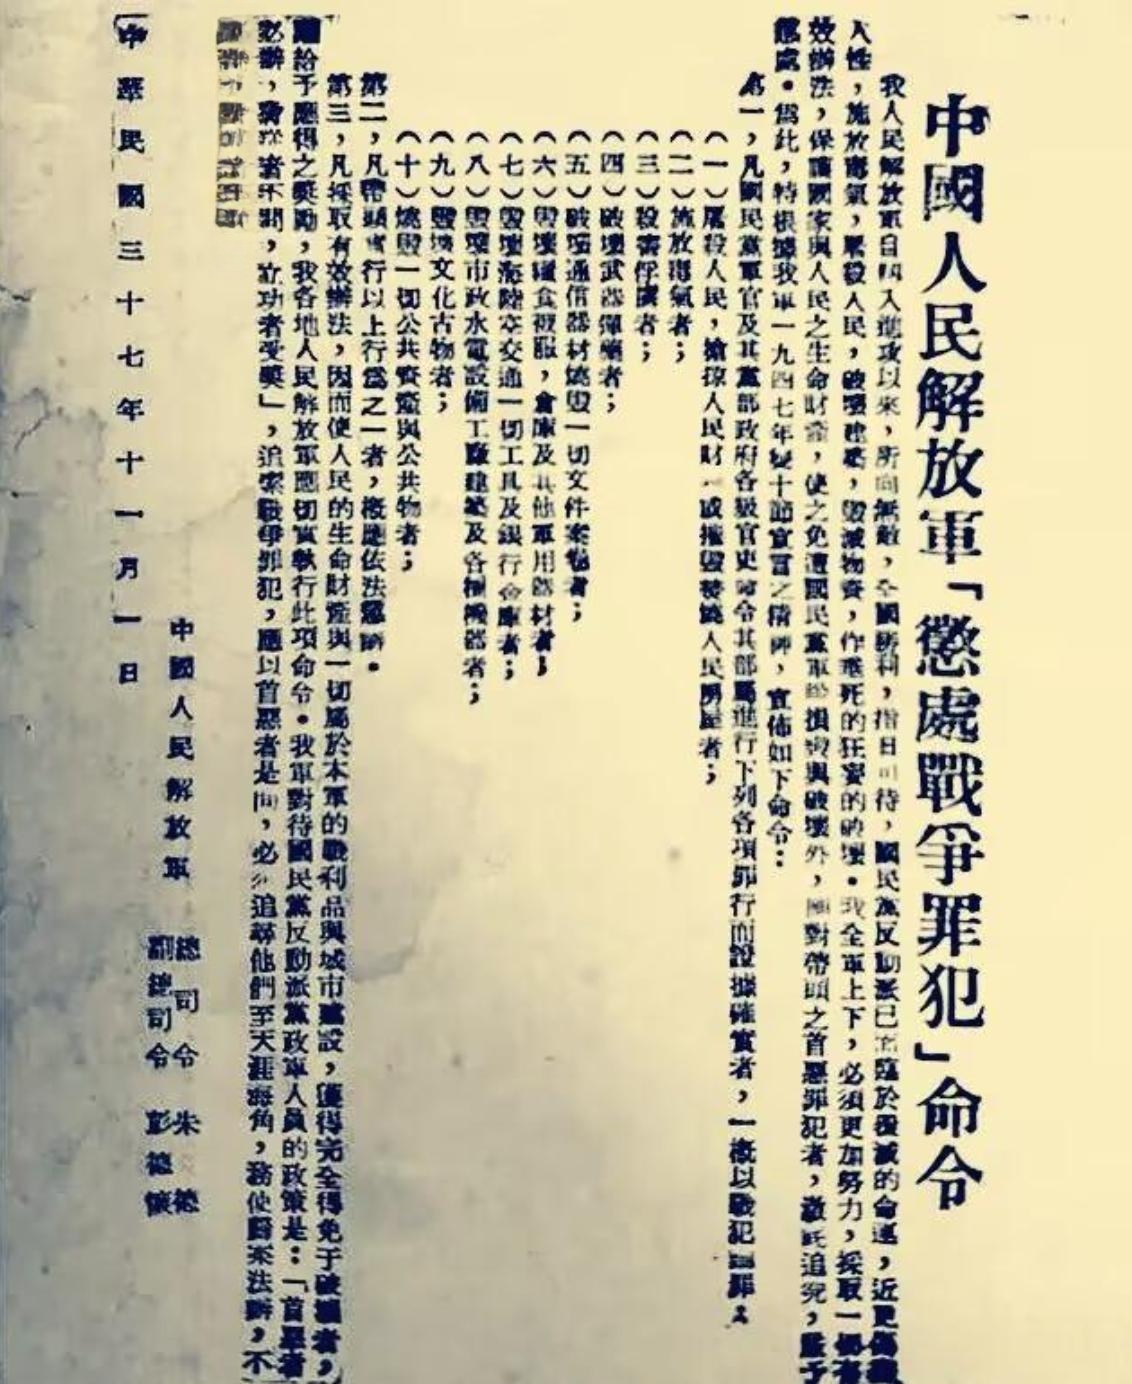 中國人民解放軍「懲處戰爭罪犯」命令
我人民解放軍自 入進攻以來，所向無敵，全國勝利，指日可待，國民黨反動派已 臨於覆滅的命運，近更傷
人性，施放毒氣，屠殺人民，破壞建築，毀滅物資，作垂死的狂妄的破壞。我全軍上下，必須更加努力，採取一切有
效辦法，保護國家與人民之生命財產，使之免遭國民黨軍 損毀與破壞外， 對帶頭之首惡罪犯者，澈底追究，嚴予
懲處。為此，特根據我軍一九四七年雙十節宣言之精神，宣佈如下命令：
第一，凡國民黨軍官及其黨部政府各級官吏命令其部屬進行下列各項罪行而證據確實者，一概以戰犯 罪：
（一）屠殺人民，搶掠人民財 或摧毀焚燒人民房屋者；
（二）施放毒氣者；
（三）殺害俘虜者；
（四）破壞武器彈藥者；
（五）破壞通信器材燒毀一切文件案卷者；
（六）毀壞糧食被服，倉庫及其他軍用器材者；
（七）毀壞海陸空交通一切工具及銀行金庫者；
（八）毀壞市政水電設備工廠建築及各種機器者；
（九）毀壞文化古物者；
（十）燒毀一切公共資產與公共物者；
第二，凡帶頭實行以上行為之一者，概應依法懲辦。
第三，凡採取有效辦法，因而使人民的生命財產與一切屬於本軍的戰利品與城市建設，獲得完全得免于破壞者，
給予應得之獎勵，我各地人民解放軍應切實執行此項命令。我軍對待國民黨反動派黨政軍人員的政策是：「首惡者
必辦，脅從者不問，立功者受獎」，追索戰爭罪犯，應以首惡者是問，必須追尋他們至天涯海角，務使歸案法辦，不
中華民國三十七年十一月一日
中國人民解放軍
總司令 朱德
副總司令 彭德懷